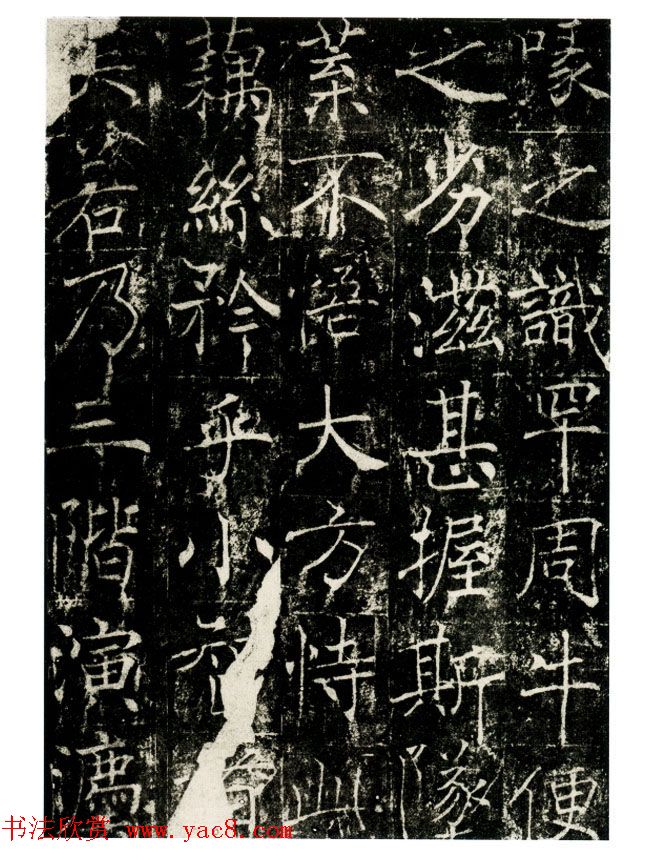 喙之識罕周牛便
之分滋甚握斯墜
葉不悟大方恃此
藕絲矜乎小智
矣若乃三階演灋
书法欣赏 www.yac8.com